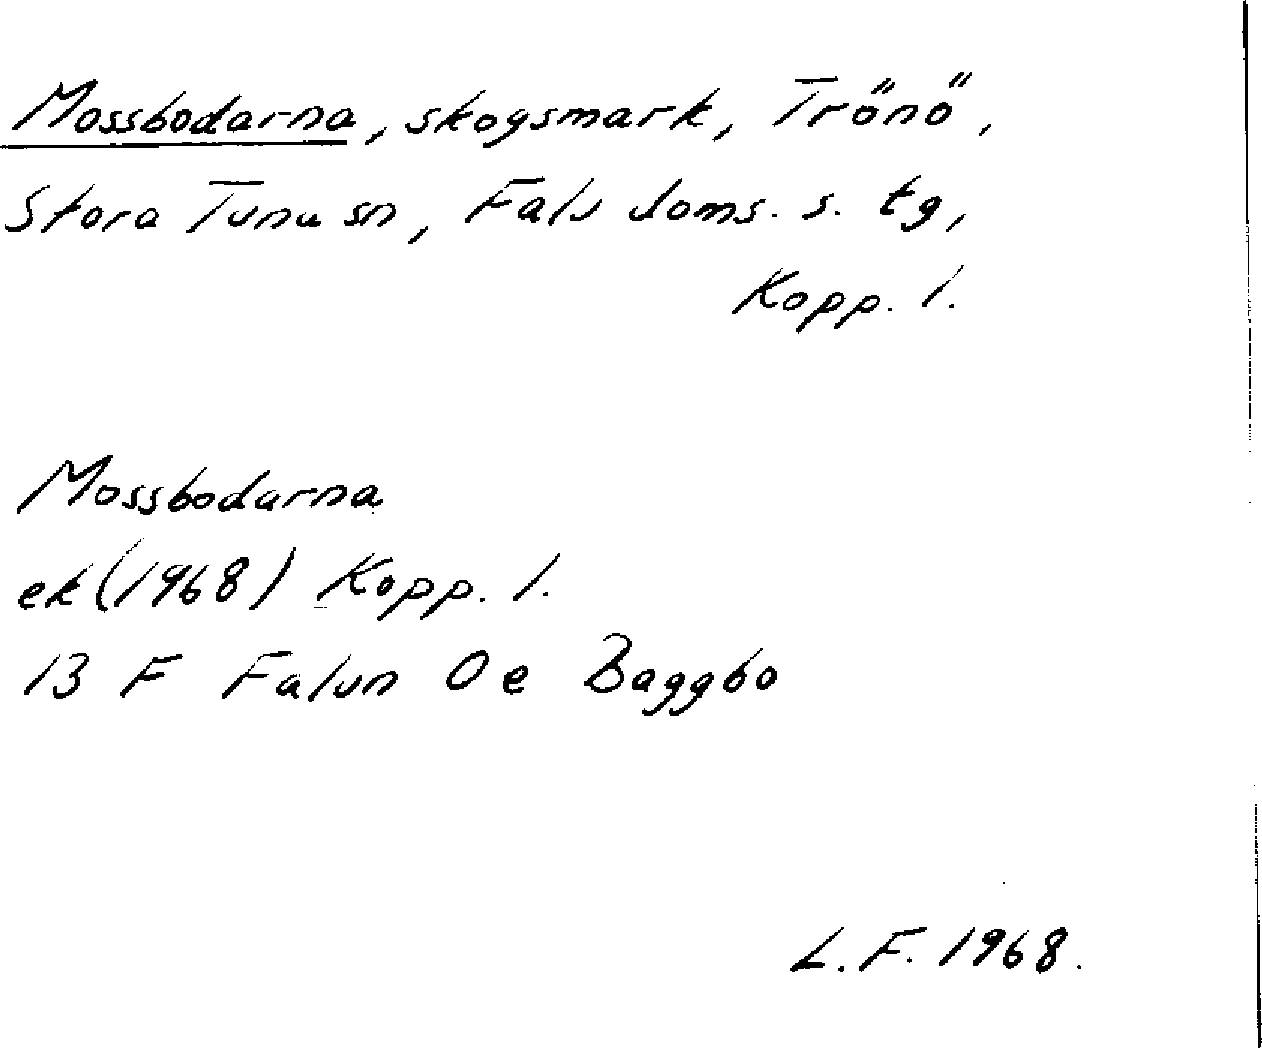 Mossbodarna, skogsmark, Trönö,
Stora Tuna sn, Falu doms. s. tg,
Kopp. l.
Mossbodarna
ek (1968) Kopp. l.
13 F Falun 0e Baggbo
L. F. 1968.